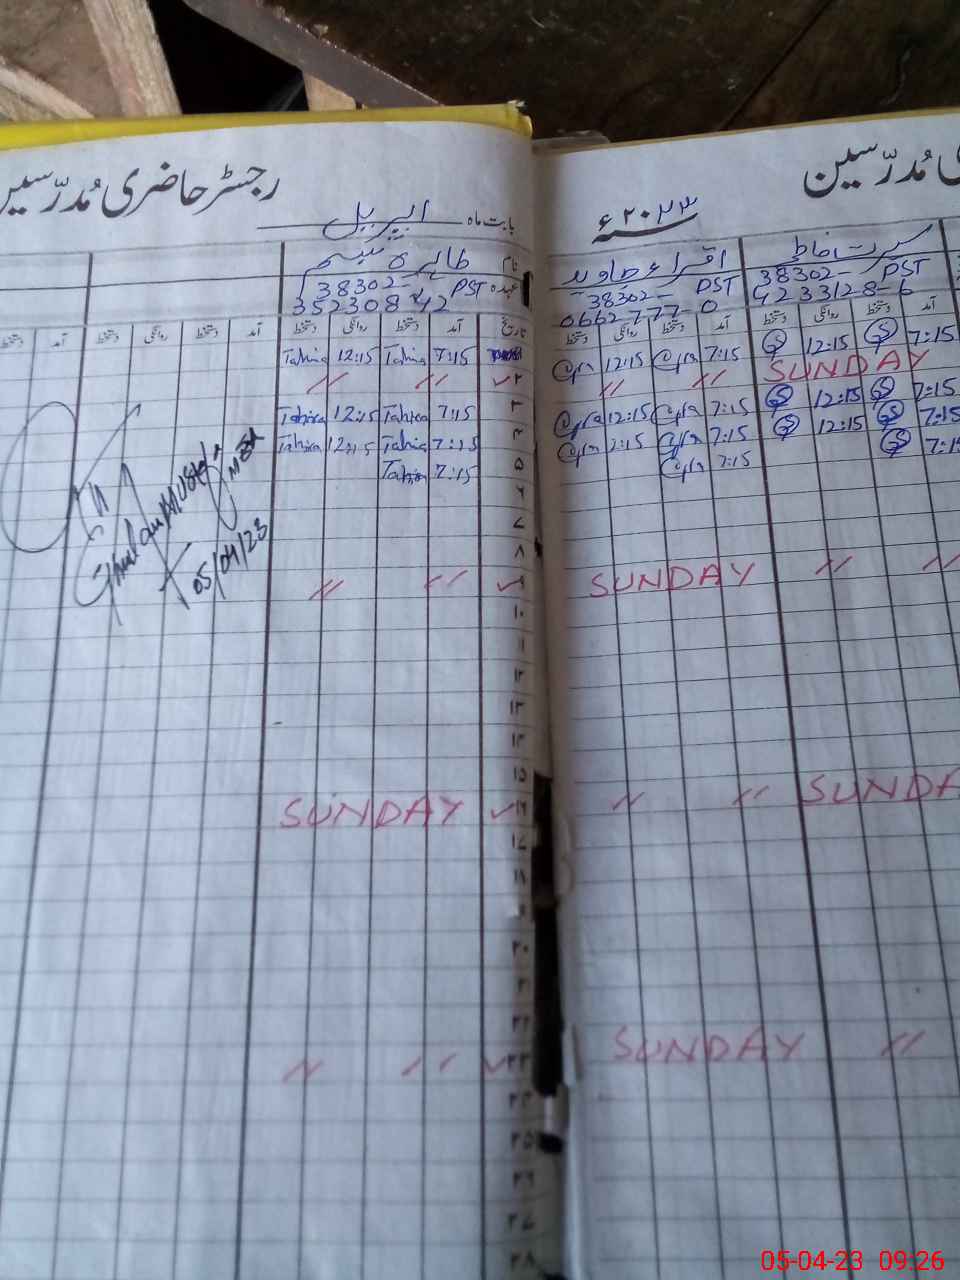 رجسٹر حاضری مُدرّسین
بابت ماہ اپریل
۲۰۲۳ء
نام طاہرہ نسیم
عہدہ PST 38302-
تاریخ آمد دستخط روانگی دستخط آمد دستخط روانگی دستخط آمد دستخط
7:15 Tahira 12:15 Tahira
۲ ✓ // //
۳ 7:15 Tahira 12:15 Tahira
۴ 7:15 Tahira 12:15 Tahira
۵ 7:15 Tahira
۶
۷
۸
۹ ✓ // //
۱۰
۱۱
۱۲
۱۳
۱۴
۱۵
۱۶ ✓ SUNDAY
۱۷
۱۸
۲۰
۲۱
۲۲
۲۳ ✓ // //
۲۴
۲۵
۲۶
۲۷
۲۸
Ghulam Mustafa
05/04/23
ی مُدرّسین
اقراء جاوید
38302- PST
0662777-0
آمد دستخط روانگی دستخط
7:15 12:15
// //
7:15 12:15
7:15 12:15
7:15
SUNDAY
// //
SUNDAY
38302- PST
4233128-6
آمد دستخط روانگی دستخط
7:15 12:15
SUNDAY
7:15 12:15
7:15 12:15
7:1
// //
SUNDA
//
05-04-23 09:26